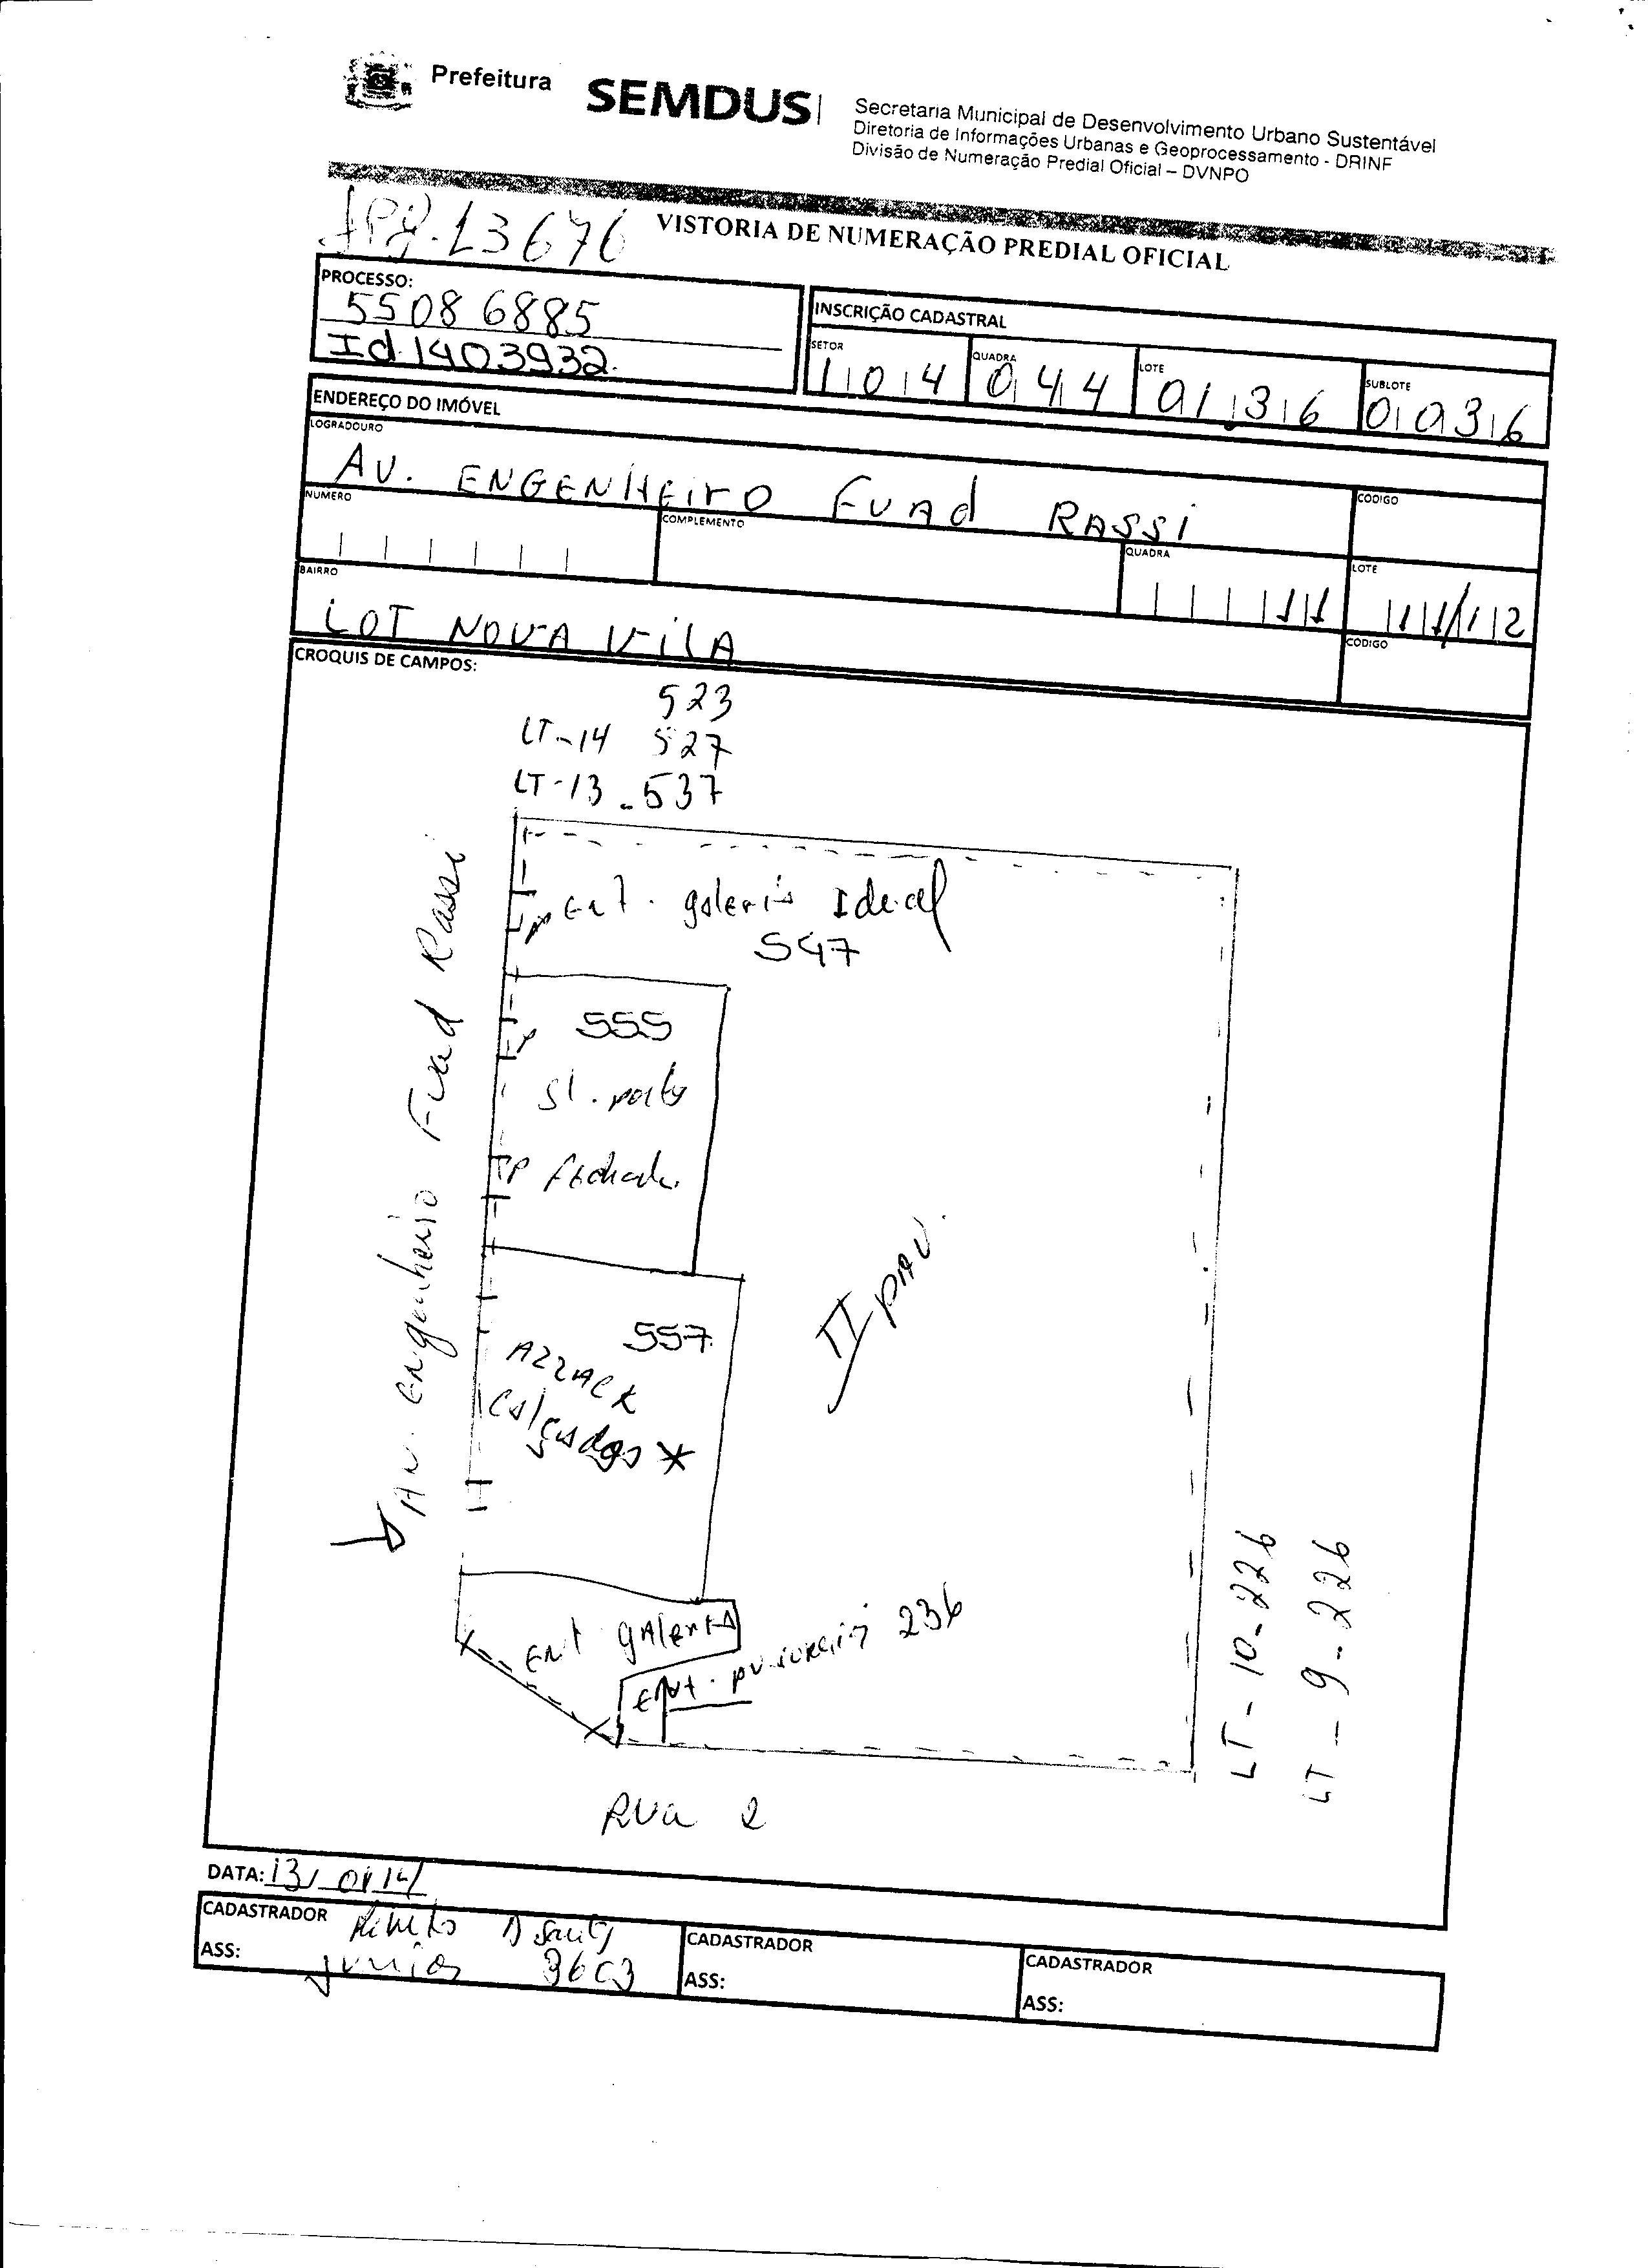 Prefeitura SEMDUS
Secretaria Municipal de Desenvolvimento Urbano Sustentável
Diretoria de Informações Urbanas e Geoprocessamento - DRINF
Divisão de Numeração Predial Oficial – DVNPO
13676
VISTORIA DE NUMERAÇÃO PREDIAL OFICIAL
PROCESSO:
5508 6885
Id.1403932.
INSCRIÇÃO CADASTRAL
SETOR QUADRA LOTE SUBLOTE
104 044 0136 0036
ENDEREÇO DO IMÓVEL
LOGRADOURO
AV. ENGENHEIRO FUAD RASSI
CODIGO
NUMERO COMPLEMENTO QUADRA LOTE
11 11/12
BAIRRO
LOT NOVA VILA
CODIGO
CROQUIS DE CAMPOS:
523
LT-14 527
LT-13 - 537
Ent. galeria Ideal
547
555
Sl.
P fechada
557
AZZACK
Calçados *
II PAV.
Av. Engenheiro Fuad Rassi
Ent galeria
Ent. 236
Rua 2
LT - 10 - 226
LT - 9 - 226
DATA: 13/01/14
CADASTRADOR
ASS: Junior 3603
CADASTRADOR
ASS:
CADASTRADOR
ASS: